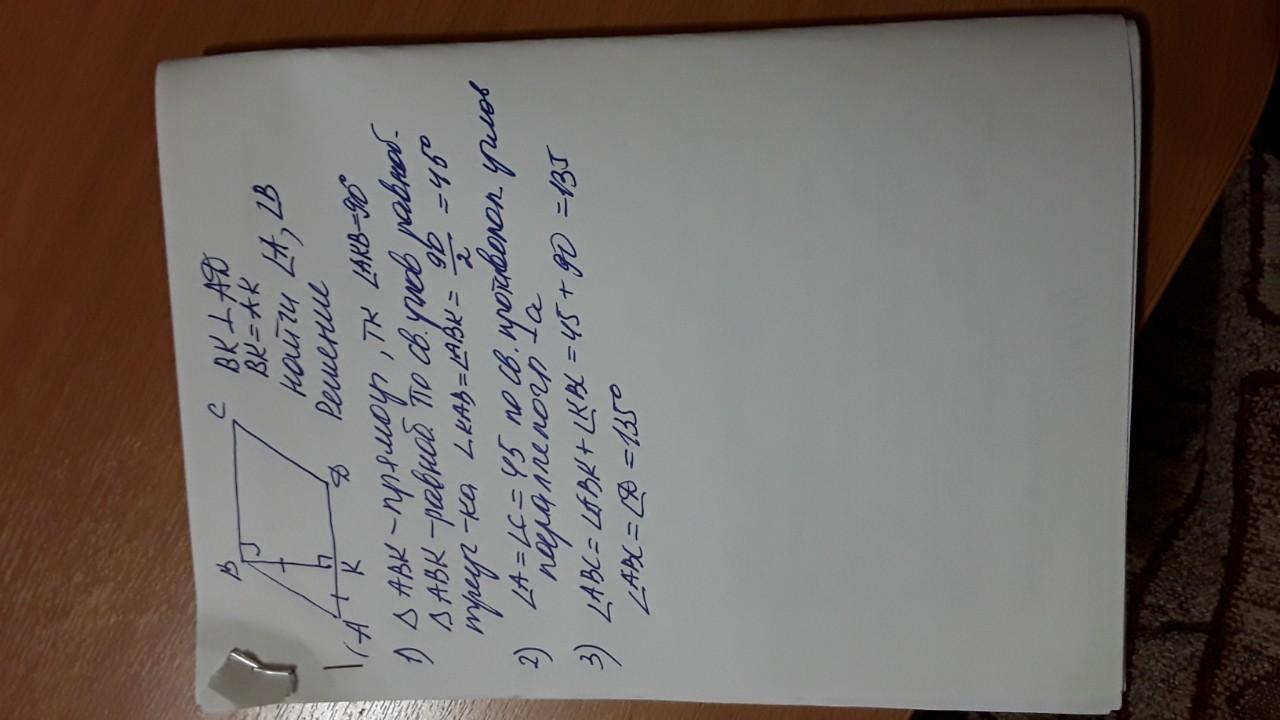 B
C
A
K
D
BK ⊥ AD
BK = AK
Найти ∠A, ∠B
Решение
1) Δ ABK - прямоуг, тк ∠AKB = 90°
Δ ABK - равноб. По св. углов равноб.
треуг-ка ∠KAB = ∠ABK = 90/2 = 45°
2) ∠A = ∠C = 45 по св. противопол. углов
параллелогр-а
3) ∠ABC = ∠ABK + ∠KBC = 45 + 90 = 135
∠ABC = ∠D = 135°